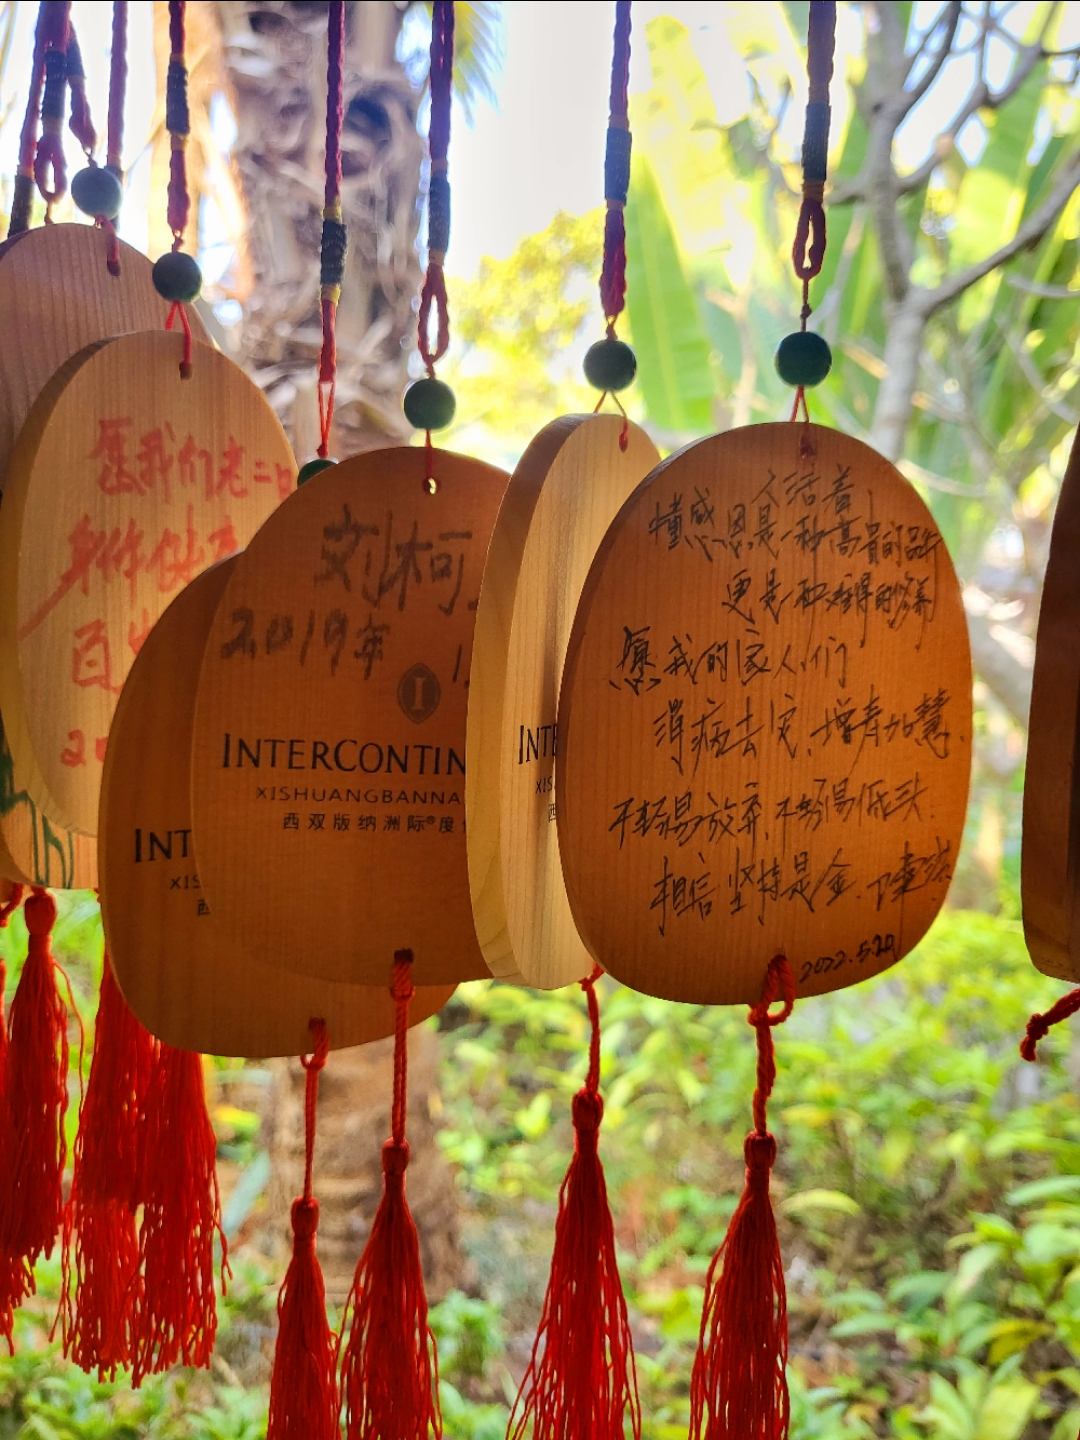 愿我们老二口
身体健
百
20
刘沐柯
2019年
I
INTERCONTIN
XISHUANGBANNA
西双版纳洲际®度
INT
XIS
INTE
XIS
西
人活着
懂感恩是一种高贵的品
更是一种难得的修养
愿我的家人们
消病去灾、增寿加慧.
不轻易放弃,不轻易低头.
相信坚持是金.
2022.5.20